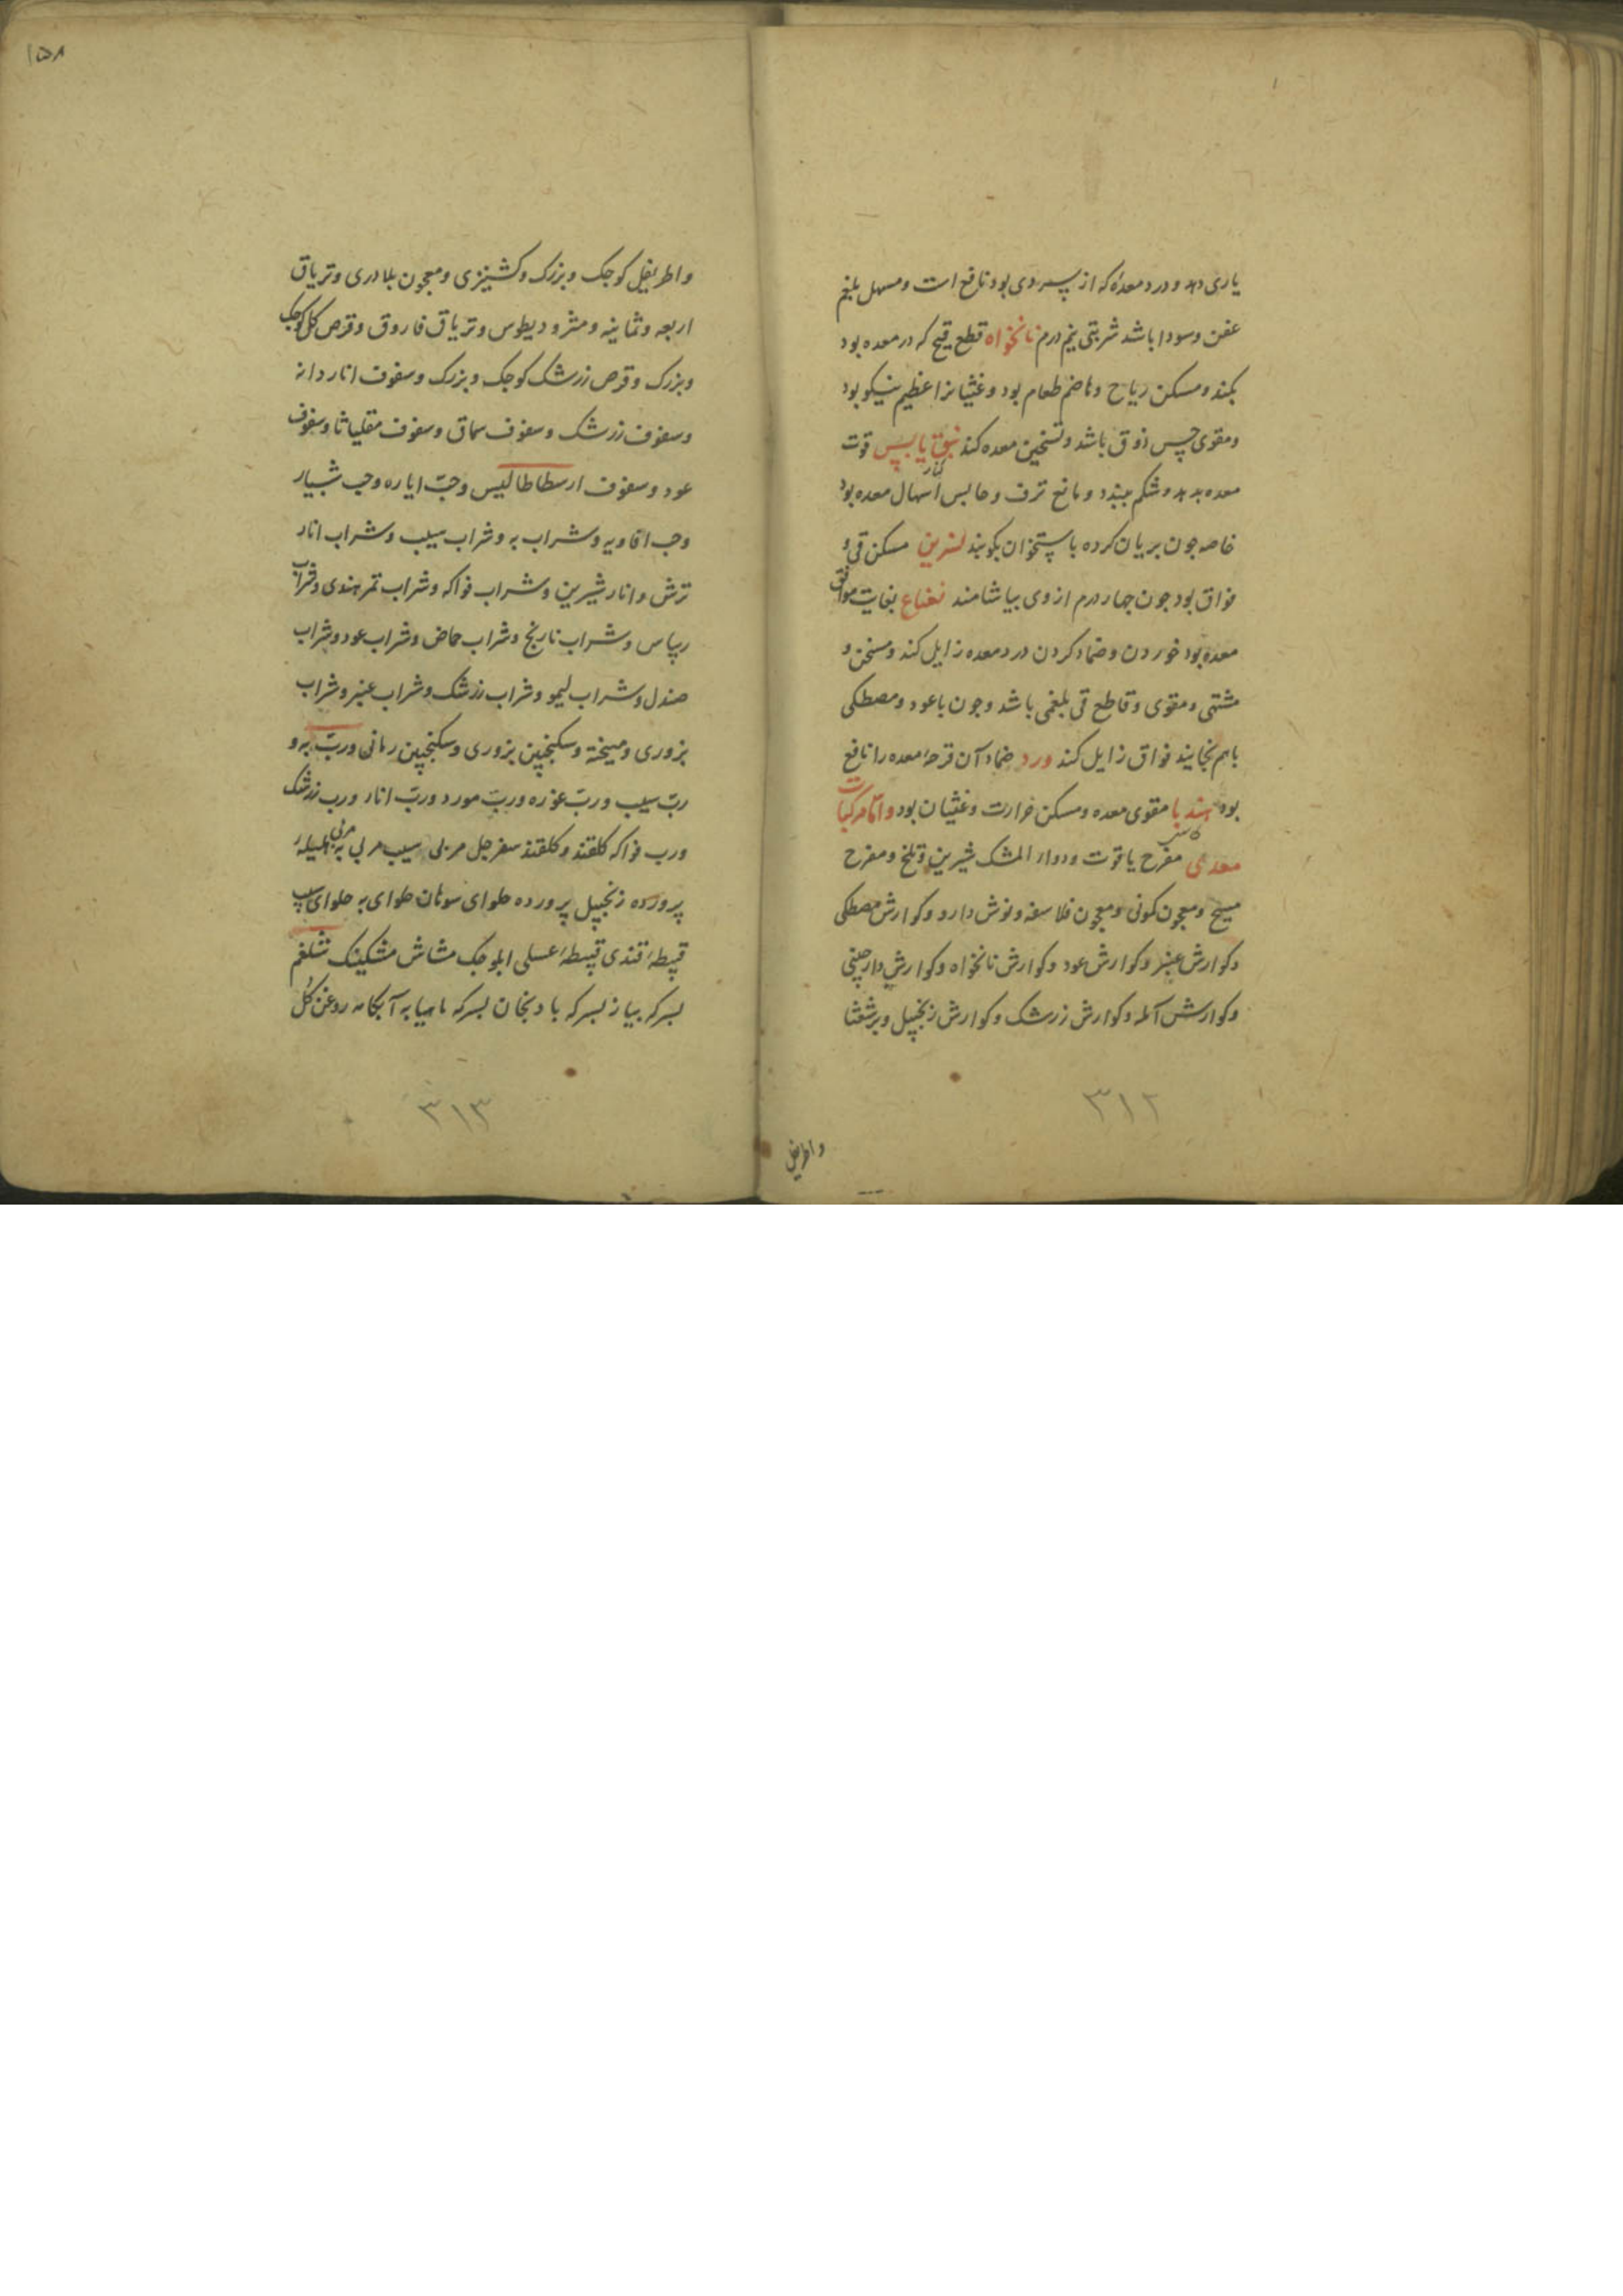 یاری دهد و درد معدهٔ که از سردی بود نافع است و مسهل بلغم
عفن و سودا باشد شربتی نیم درم نانخواه قطع قیح که در معده بود
بکند و مسکن ریاح و هاضم طعام بود و غثیانرا عظیم نیکو بود
و مقوی حس ذوق باشد و تسخین معده کند نبق یابس قوت
کنار
معده بدهد و شکم ببندد و مانع نزف و حابس اسهال معده بود
خاصه جون بریان کرده با استخوان بکوبند نسرین مسکن قی و
فواق بود جون جهار درم از وی بیاشامند نعناع بغایت موافق
معده بود خوردن و ضماد کردن درد معده زایل کند و مسخن و
مشتهی و مقوی و قاطع قی بلغمی باشد و جون با عود و مصطکی
باهم بخایند فواق زایل کند ورد ضماد آن قرحهٔ معده را نافع
بود هندبا مقوی معده و مسکن حرارت و غثیان بود و اما مرکبات
کاسنی
معدی مفرح یاقوت و دواء المشک شیرین و تلخ و مفرح
مسیح و معجون کمونی و معجون فلاسفه و نوش دارو و کوارش مصطکی
و کوارش عنبر و کوارش عود و کوارش نانخواه و کوارش دارچینی
و کوارش آمله و کوارش زرشک و کوارش زنجبیل و برشعثا
۳۱۲
واطریفل
۱۵۸
واطریفل کوجک و بزرک و کشنیزی و معجون بلادری و تریاق
اربعه و ثمانیه و مثرودیطوس و تریاق فاروق و قرص کل کوجک
و بزرک و قرص زرشک کوجک و بزرک و سفوف انار دانه
و سفوف زرشک و سفوف سماق و سفوف مقلیاثا و سفوف
عود و سفوف ارسطاطالیس و حبّ ایاره و حب شبیار
و حب افاویه و شراب به و شراب سیب و شراب انار
ترش و انار شیرین و شراب فواکه و شراب تمر هندی و شراب
ریباس و شراب نارنج و شراب حماض و شراب عود و شراب
صندل و شراب لیمو و شراب زرشک و شراب عنبر و شراب
بزوری و میبخته و سکنجبین بزوری و سکنجبین رمانی و ربّ به و
ربّ سیب و ربّ غوره و ربّ مورد و ربّ انار و رب زرشک
و رب فواکه کلقند و کلقند سفرجل مربی سیب مربی به مربی هلیلهٔ
پرورده زنجبیل پرورده حلوای سوهان حلوای به حلوای سیب
قبیطهٔ قندی قبیطهٔ عسلی ابلوجک مشاش مشکینک شلغم
بسرکه بیاز بسرکه بادنجان بسرکه ماهیابه آبکامه روغن کل
۳۱۳